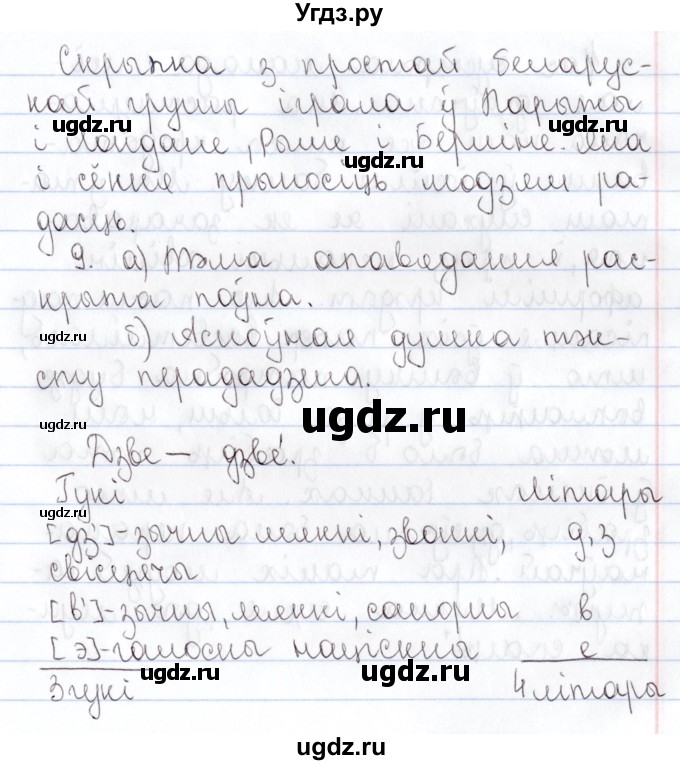 Угдз.ру
Скрыпка з простай беларус-
кай грушы іграла ў Парыжы
ugdz.ru
ugdz.ru
і Лондане, Рыме і Берліне. Яна
ugdz.ru
і сёння прыносіць людзям ра-
дасць.
9. а) Тэма апавядання рас-
крыта поўна.
ugdz.ru
ugdz.ru
б) Асноўная думка тэк-
сту перададзена.
ugdz.ru
Дзве – дзве́.
Гукі Літары
ugdz.ru
[дз']-зычны мяккі, звонкі, д, з
свісцячы
ugdz.ru
[в']-зычны, мяккі, санорны в
[э]-галосны націскны е
ugdz.ru
ugdz.ru
3 гукі 4 літары
ugdz.ru